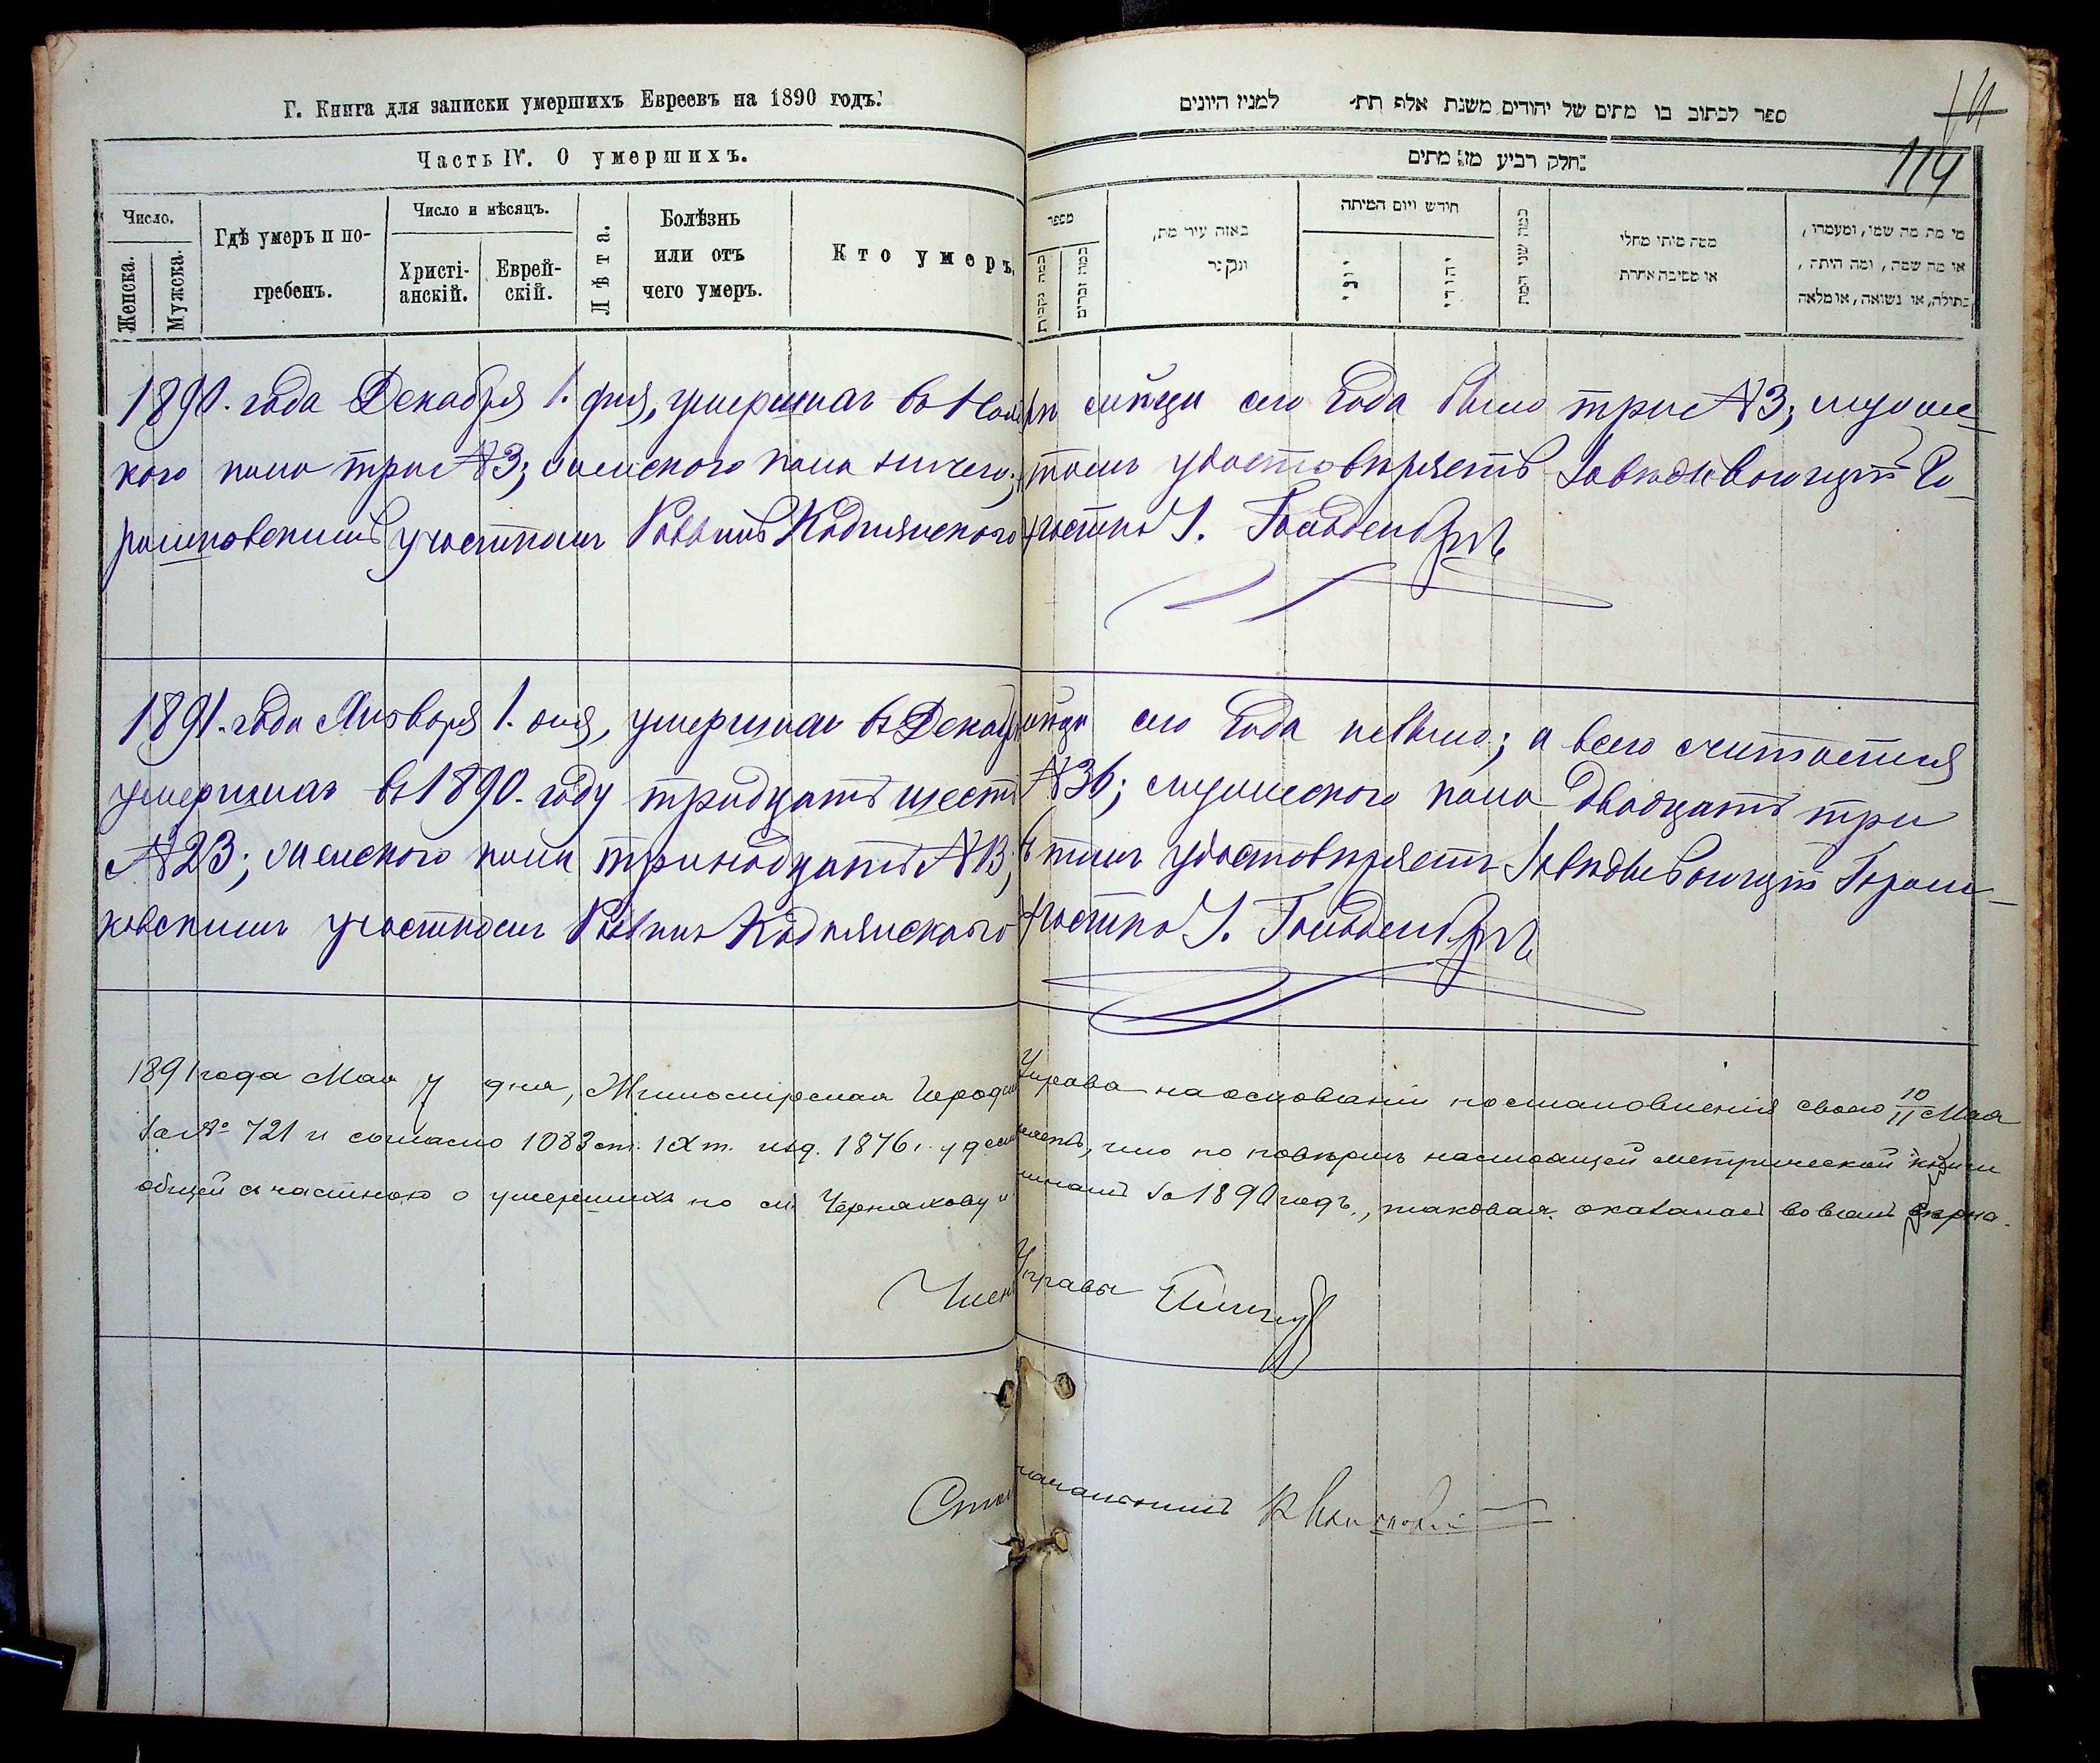 Г. Книга для записки умершихъ Евреевъ на 1890 годъ.
Часть IV. О умершихъ.
Число.
Женска.
Мужска.
Гдѣ умеръ и по-
гребенъ.
Число и мѣсяцъ.
Христі-
анскій.
Еврей-
скій.
Лѣта.
Болѣзнь
или отъ
чего умеръ.
Кто умеръ.
ספר לכתוב בו מתים של יהודים משנת אלף תת למנין היונים
114
חלק רביע מן מתים
מספר
כמה נקבות
כמה זכרים
באזה עיר מת,
ונקבר
חודש ויום המיתה
יוני
יהודי
כמה שני המת
מסה מיתי מחלי
או מסיבה אחרת
מי מת מה שמו, ומעמדו,
או מה שמה, ומה היתה,
בתולה, או נשואה, או מלאה
1890. года Декабря 1. дня, умершихъ въ Ноябрѣ мѣсяцѣ сего года было три №3; мужес-
кого пола три №3; женского пола ничего; въ томъ удостовѣряетъ Завѣдывающій Го-
рошковскимъ участкомъ Раввинъ Коднянского участка І. Гольденбергъ
1891. года Января 1. дня, умершихъ въ Декабрѣ мѣсяцѣ сего года небыло; а всего считается
умершихъ въ 1890. году тридцать шесть №36; мужеского пола двадцать три
№23; женского пола тринадцать №13; въ томъ удостовѣряетъ Завѣдывающій Горош-
ковскимъ участкомъ Раввинъ Коднянского участка І. Гольденбергъ
1891 года Мая 17 дня, Житомірская Городская Управа на основаніи постановленія своего 10/11 Мая
за № 721 и согласно 1083 ст. IX т. изд. 1876 г. что по повѣркѣ настоящей метрической книги
общей съ частною о умершихъ по м. Черняхову за 1890 годъ, таковая оказалась вовсемъ вѣрна.
Членъ Управы
Столоначальникъ